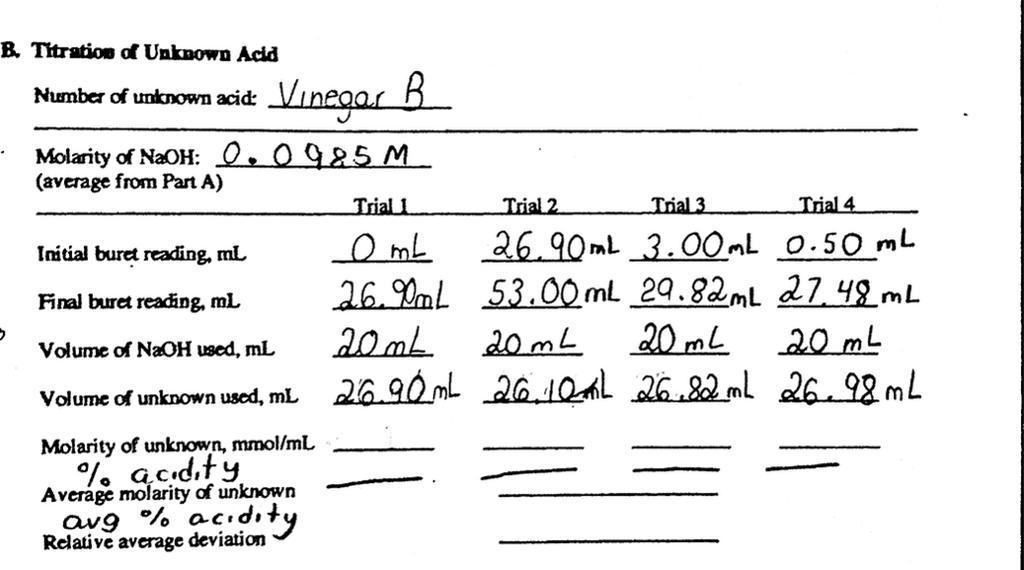 B. Titration of Unknown Acid
Number of unknown acid: Vinegar B
Molarity of NaOH: 0.0985 M
(average from Part A)
Trial 1 Trial 2 Trial 3 Trial 4
Initial buret reading, mL 0 mL 26.90 mL 3.00 mL 0.50 mL
Final buret reading, mL 26.90 mL 53.00 mL 29.82 mL 27.48 mL
Volume of NaOH used, mL 20 mL 20 mL 20 mL 20 mL
Volume of unknown used, mL 26.90 mL 26.10 mL 26.82 mL 26.98 mL
Molarity of unknown, mmol/mL
% acidity
Average molarity of unknown
avg % acidity
Relative average deviation